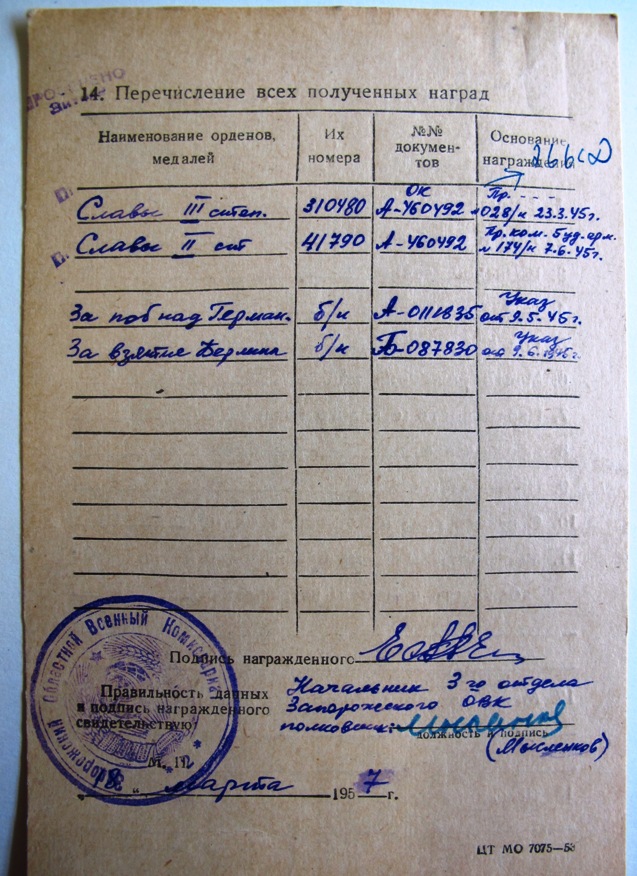 14. Перечисление всех полученных наград
Наименование орденов, медалей
Их номера
№№ документов
Основание награждения
Славы III степ. 310480 ОК А-460492 Пр. №028/н 23.3.45г.
Славы II ст 41790 А-460492 Пр. ком. 5 уд. арм. № 174/н 7.6.45г.
За поб над Герман. б/н А-0111835 Указ от 9.5.45г.
За взятие Берлина б/н Б-087830 Указ от 9.6.45г.
Подпись награжденного
Правильность данных и подпись награжденного свидетельствую:
Начальник 3го отдела
Запорожского ОВК
полковник:
должность и подпись
(Мысленков)
М. П.
марта 1957 г.
Запорожский Областной Военный Комиссариат
ЦТ МО 7075—53